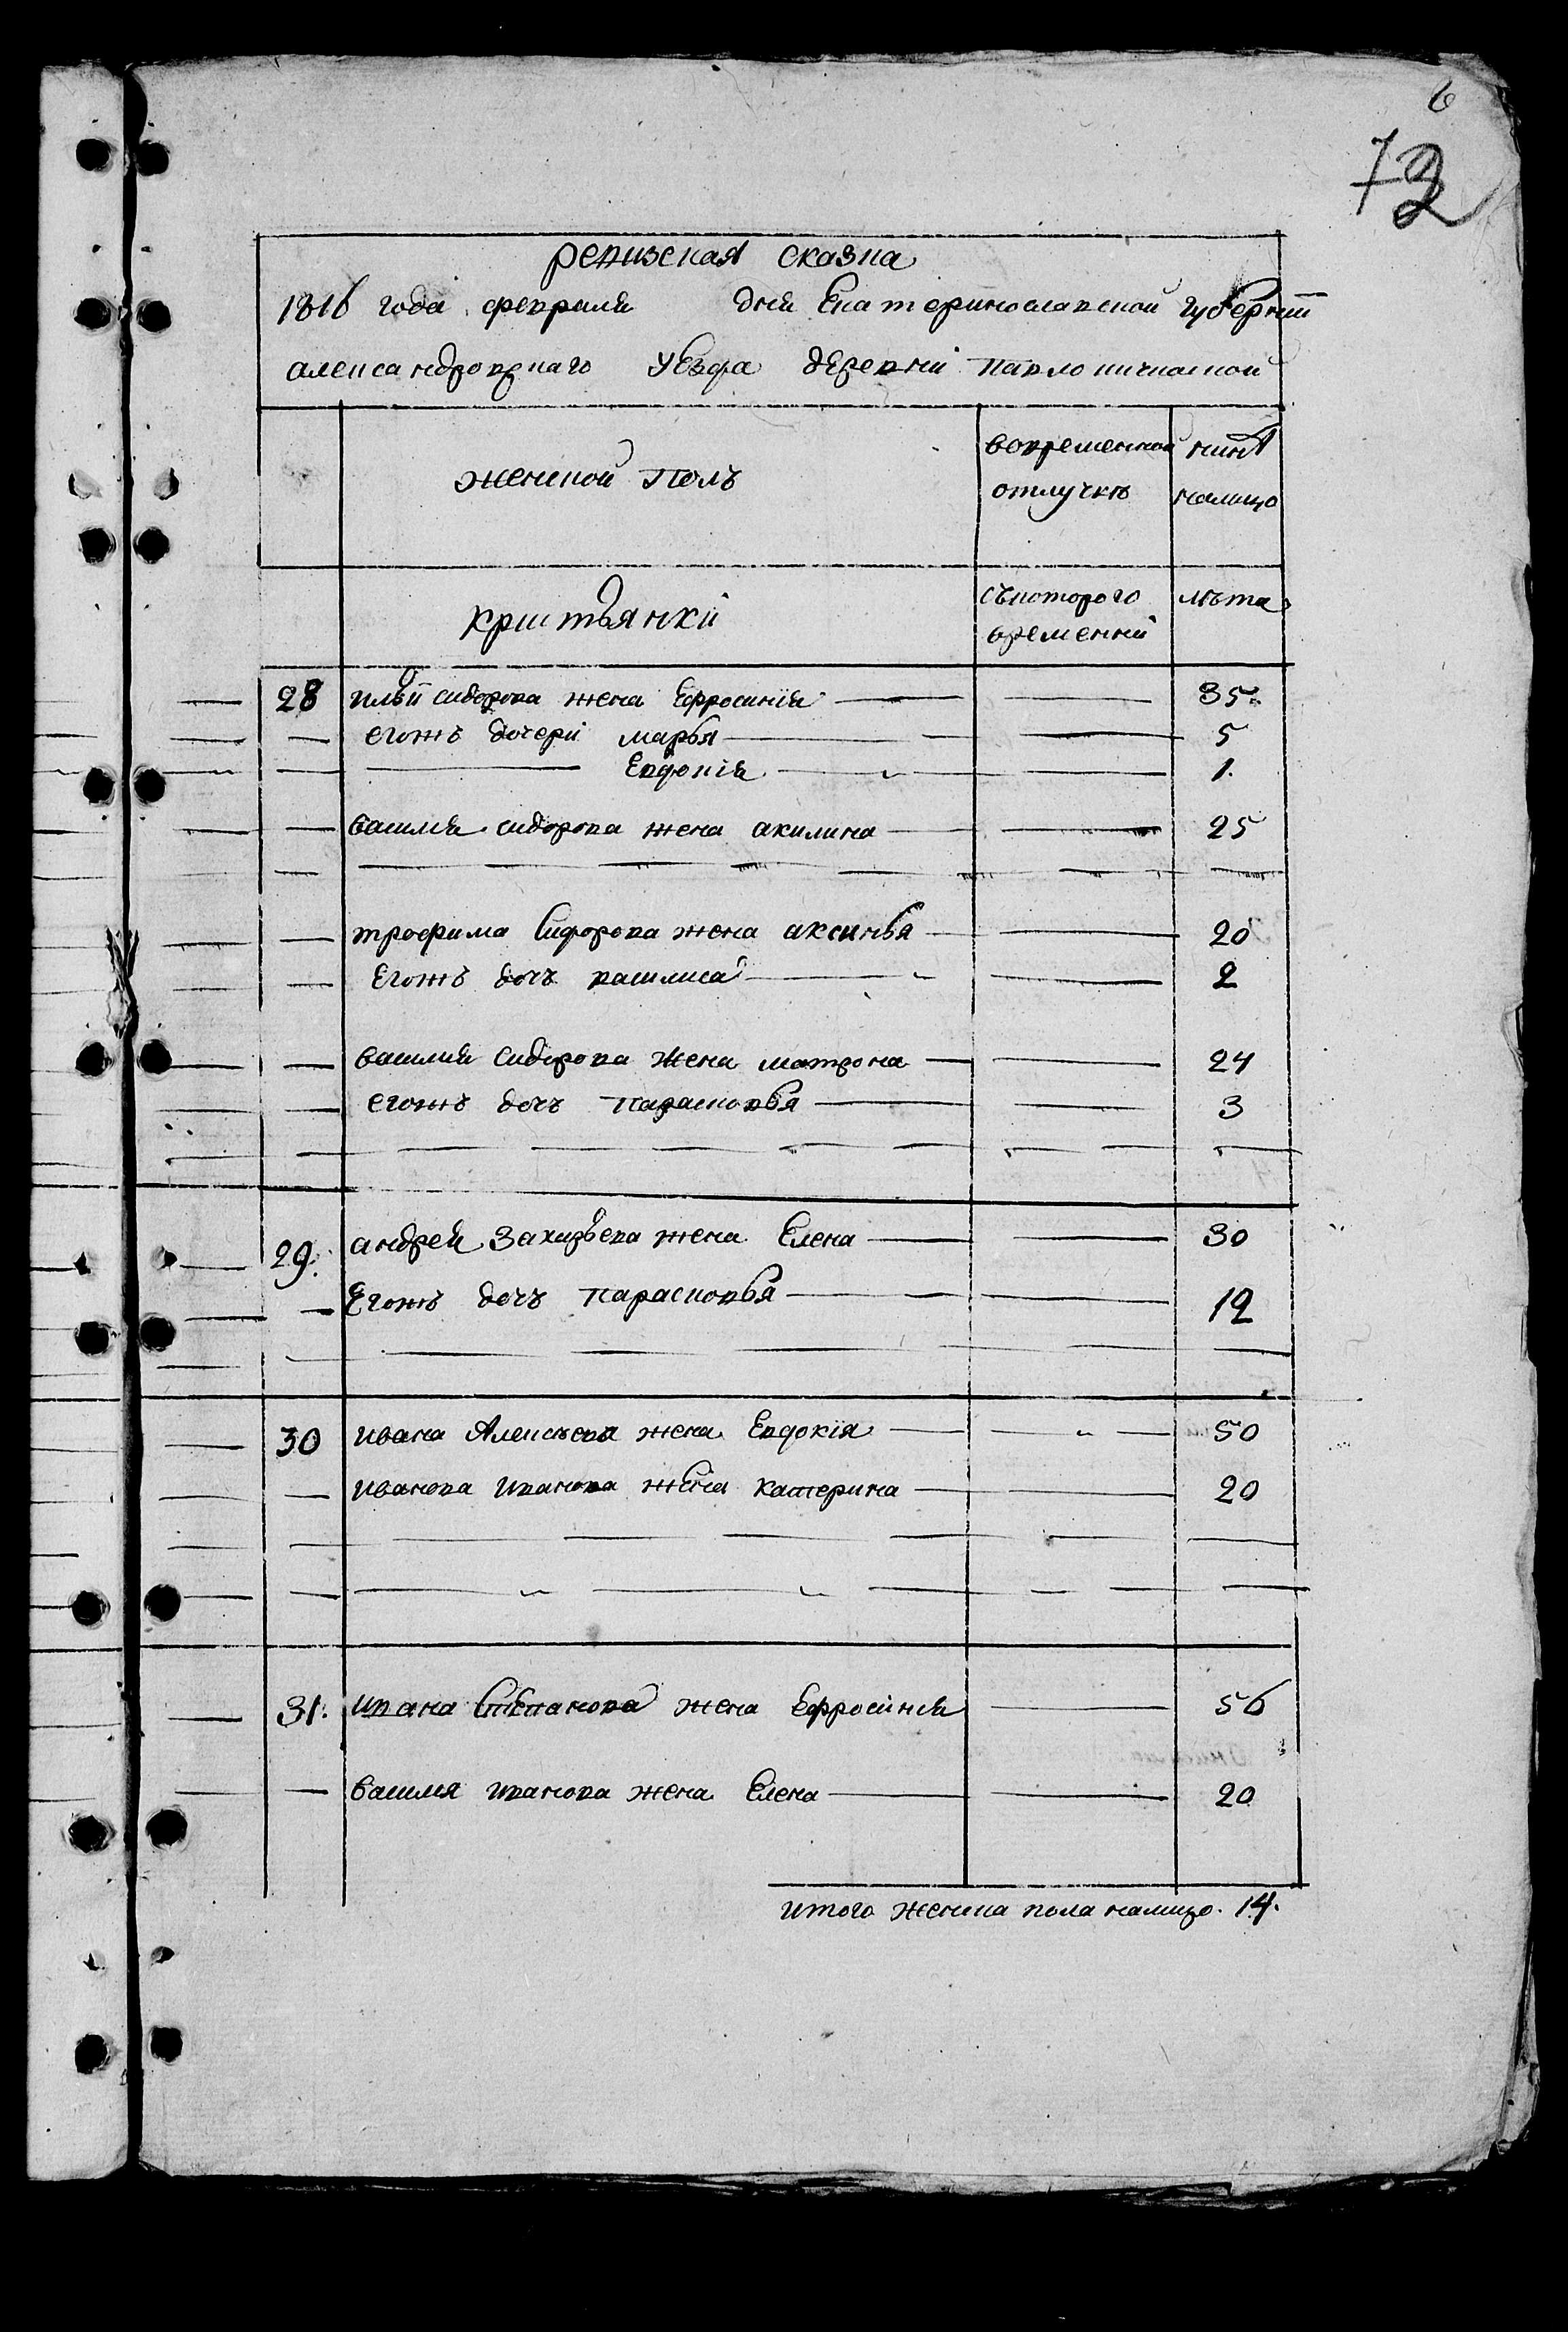 6
73
ревизская сказка
1816 года февраля дня Екатеринославской губерниі
александровскаго уезда деревні Павло
женской полъ
вовременной отлучке
ныня налицо
крпистьянкі
съкоторого временні
лѣта
28 ильи сидорова жена Ефросинія 35.
егожъ дочері марья 5
Евдокія 1.
василія сидорова жена акилина 25
трофима Сидорова жена аксинья 20
Егожъ дочъ василиса 2
василия сидорова жена матрона 24
егожъ дочъ парасковья 3
29. андрея Захарьева жена Елена 30
Егожъ дочъ парасковья 12
30 ивана Алексеева жена Евдокія 50
иванова иванова жена катерина 20
31. ивана Степанова жена Ефросинія 56
василя иванова жена Елена 20
итого женска пола налицо. 14.